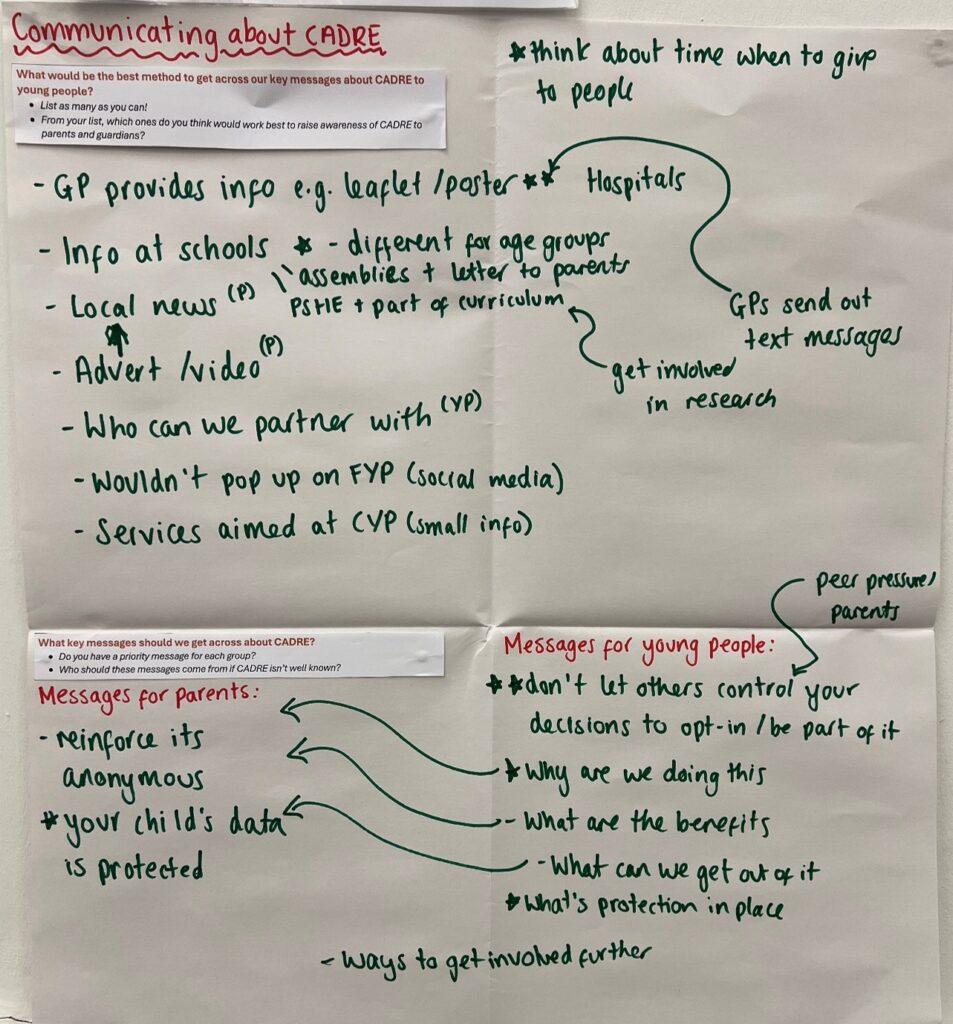 Communicating about CADRE
What would be the best method to get across our key messages about CADRE to
young people?
• List as many as you can!
• From your list, which ones do you think would work best to raise awareness of CADRE to
parents and guardians?
*think about time when to give
to people
- GP provides info e.g. leaflet/poster **
Hospitals
- Info at schools * - different for age groups
assemblies + letter to parents
- Local news (P)
PSHE + part of curriculum
GPs send out
text messages
- Advert/video (P)
get involved
in research
- Who can we partner with (YP)
- Wouldn't pop up on FYP (social media)
- Services aimed at CYP (small info)
peer pressure/
parents
What key messages should we get across about CADRE?
• Do you have a priority message for each group?
• Who should these messages come from if CADRE isn't well known?
Messages for parents:
- reinforce its
anonymous
*your child's data
is protected
Messages for young people:
**don't let others control your
decisions to opt-in/be part of it
*Why are we doing this
- What are the benefits
- What can we get out of it
*What's protection in place
- Ways to get involved further